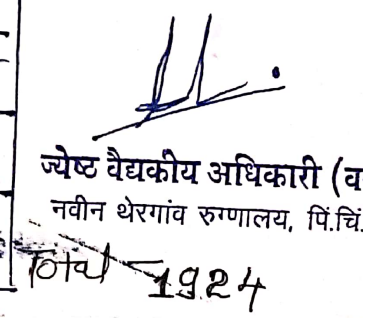 ज्येष्ट वैद्यकीय अधिकारी (व
नवीन थेरगांव रुग्णालय, पिं.चिं.
Total - 1924